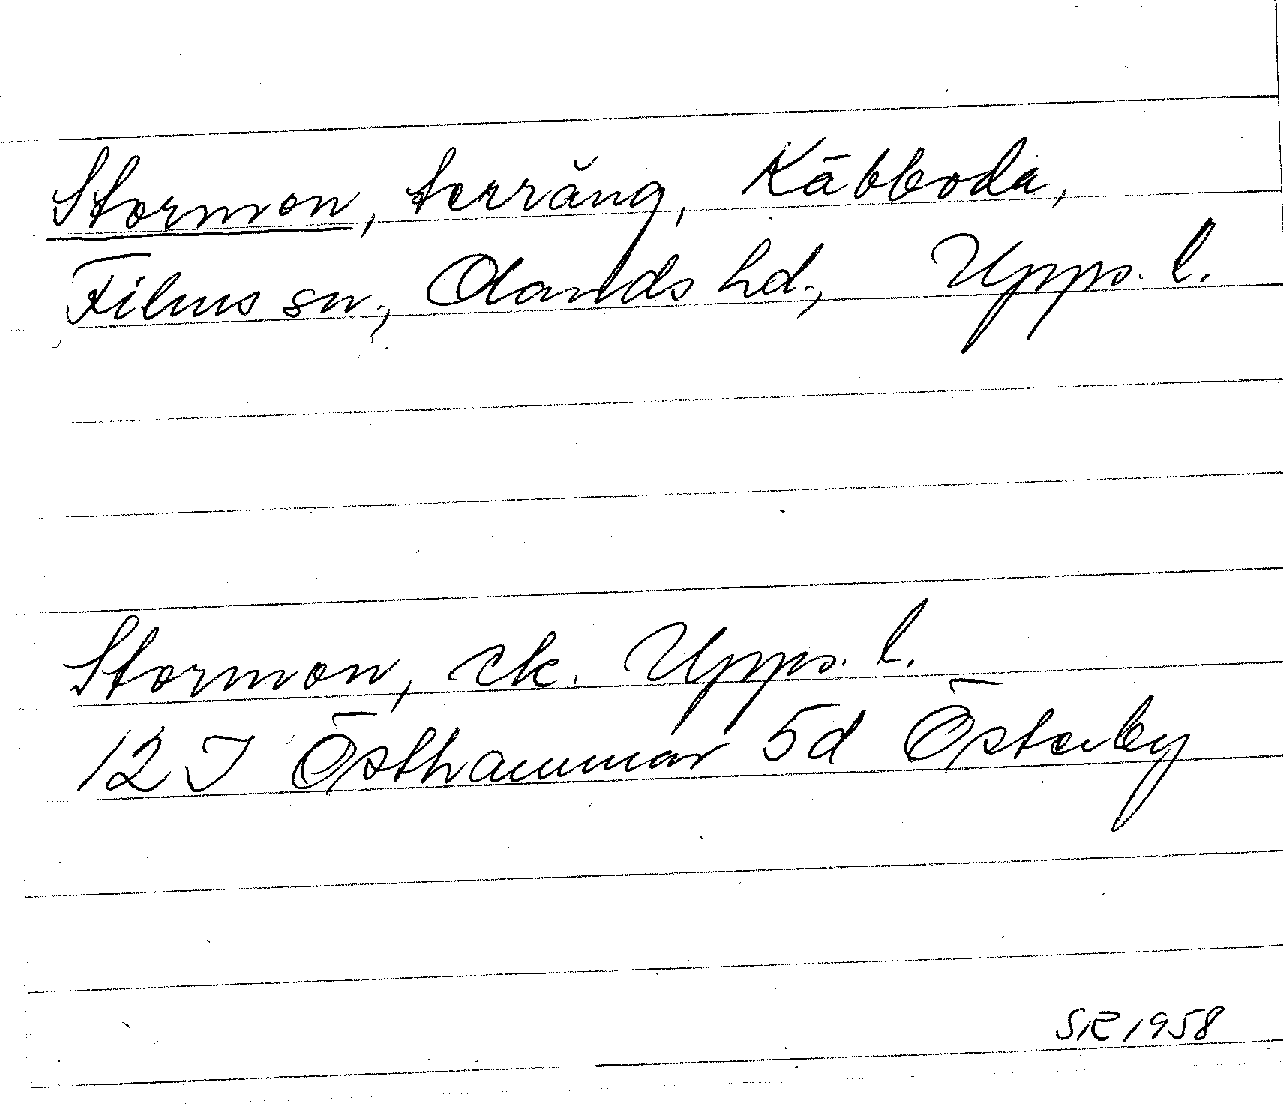 Stormon, terräng, Käbboda,
Films sn., Olands hd., Upps. l.
Stormon, ek. Upps. l.
12 I Östhammar 5d Österby
SR 1958